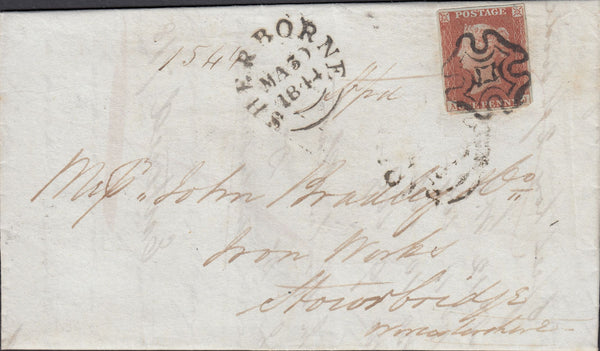 POSTAGE
1544
SHERBORNE
MA 30
1844
Messrs. John Bradley & Co
Iron Works
Stourbridge
Worcestershire